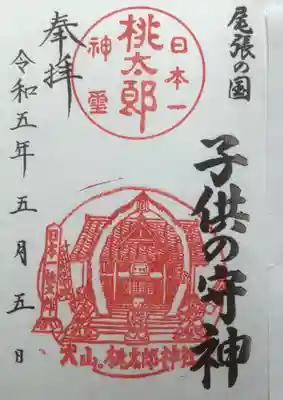 尾張の国
子供の守神
奉拝
日本一
桃太郎
神霊
令和五年五月五日
犬山。桃太郎神社